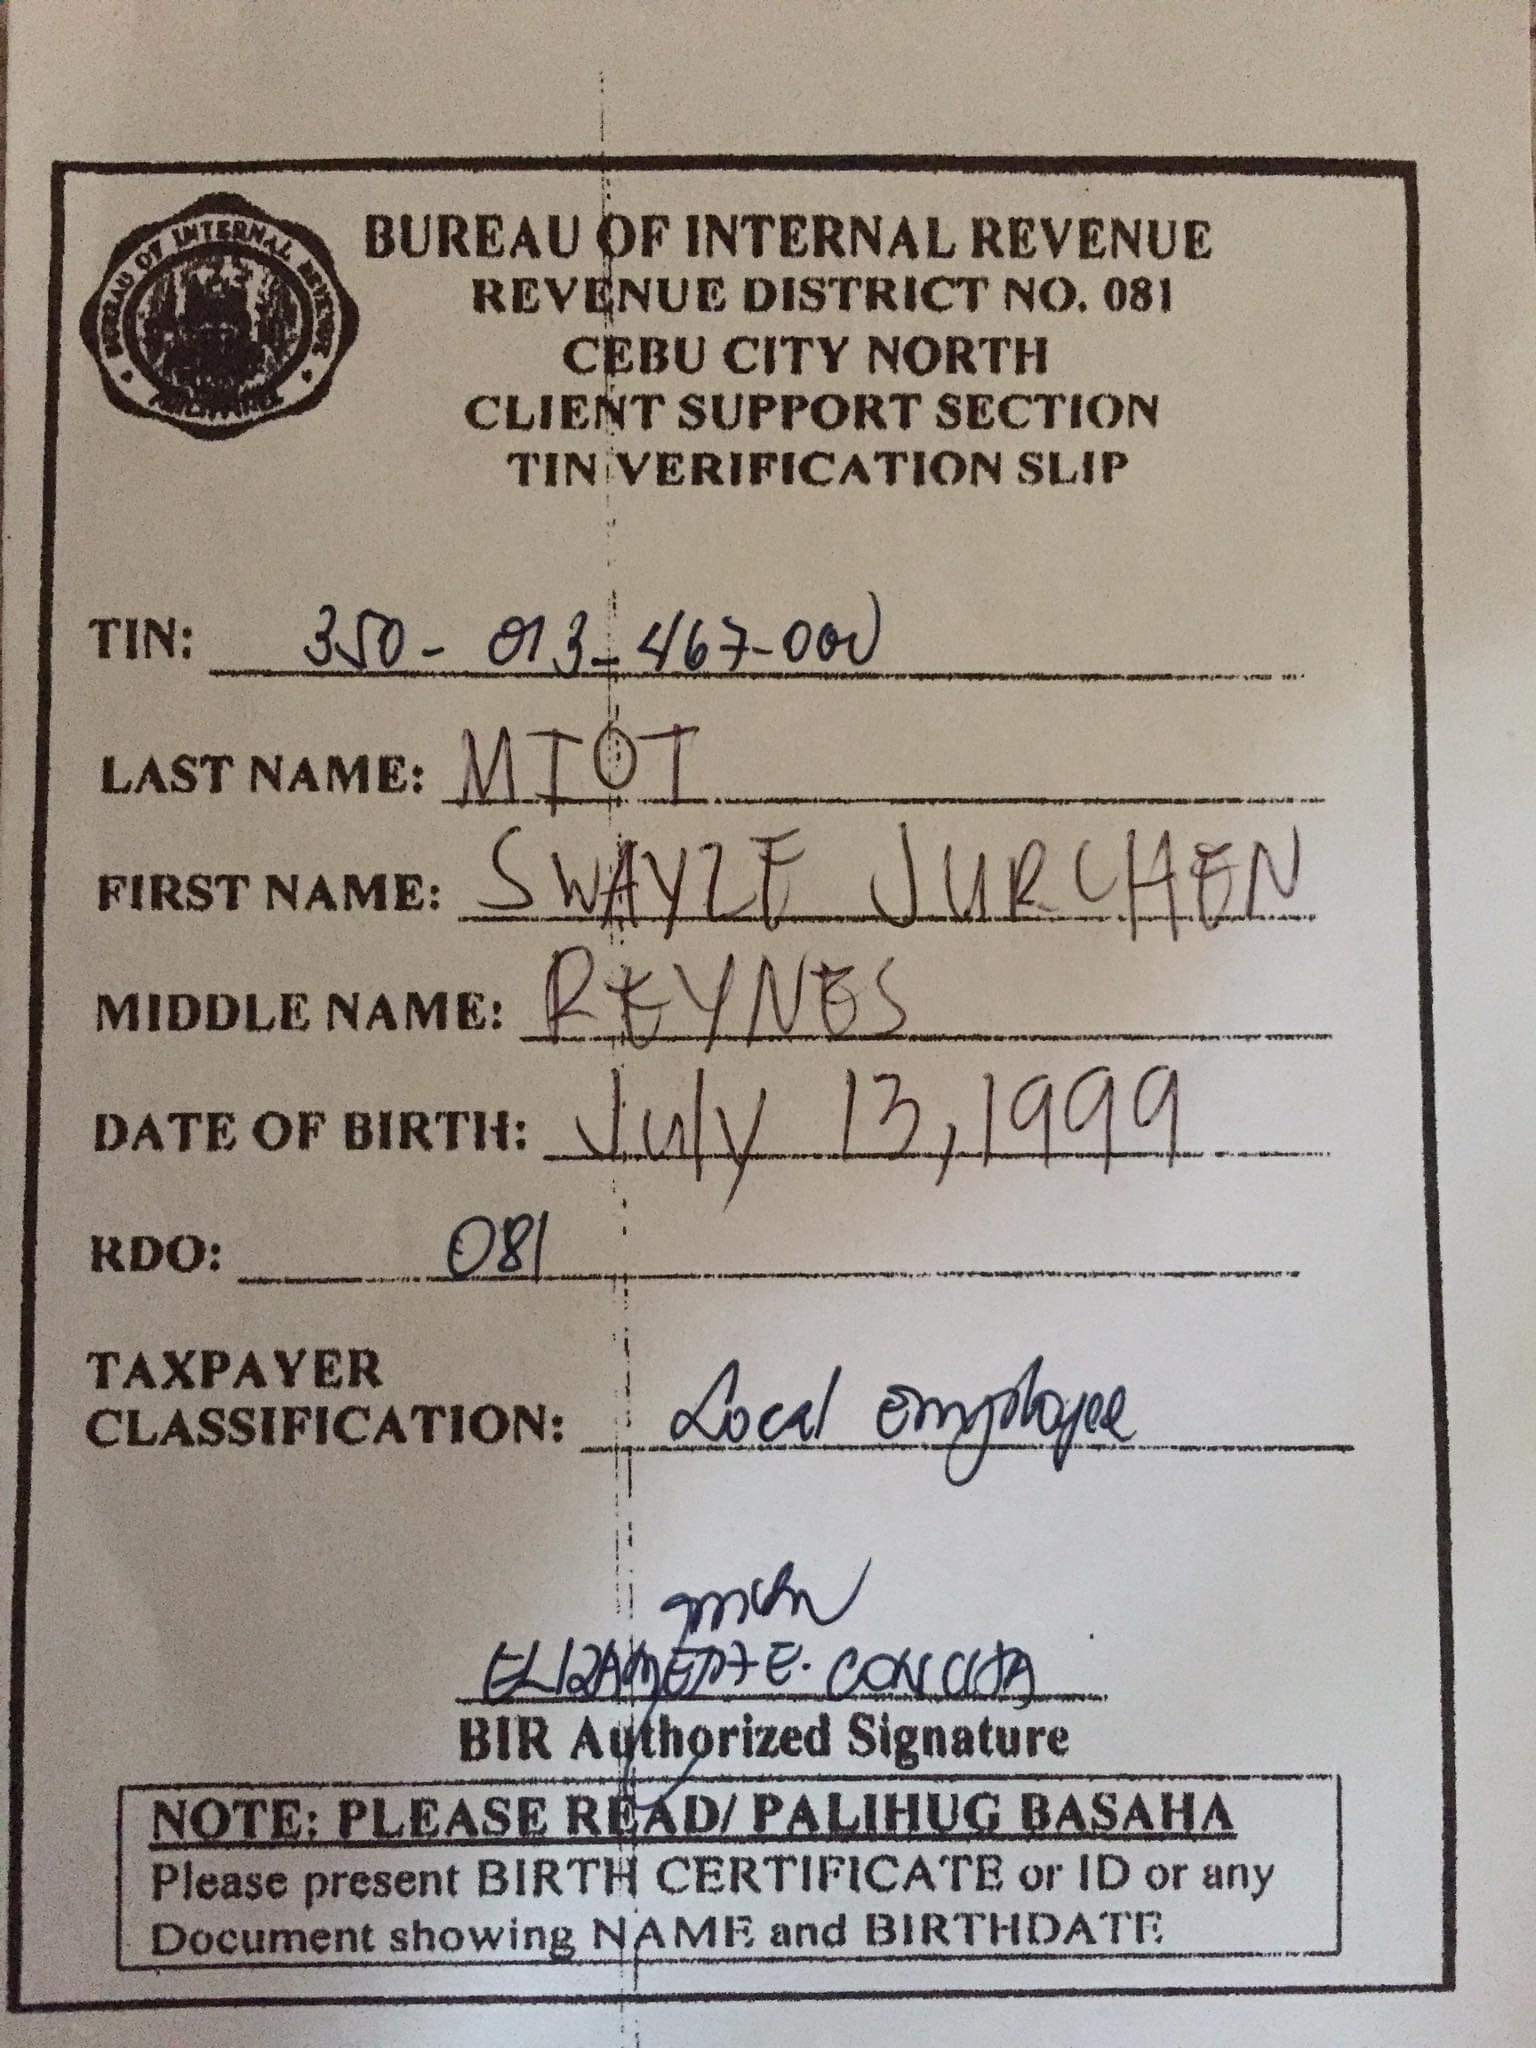 BUREAU OF INTERNAL REVENUE
BUREAU OF INTERNAL REVENUE
REVENUE DISTRICT NO. 081
CEBU CITY NORTH
CLIENT SUPPORT SECTION
TIN VERIFICATION SLIP
TIN: 350-013-467-000
LAST NAME: MIOT
FIRST NAME: SWAYZE JURCHEN
MIDDLE NAME: REYNES
DATE OF BIRTH: July 13, 1999
RDO: 081
TAXPAYER
CLASSIFICATION: Local employee
E.
BIR Authorized Signature
NOTE: PLEASE READ/ PALIHUG BASAHA
Please present BIRTH CERTIFICATE or ID or any
Document showing NAME and BIRTHDATE